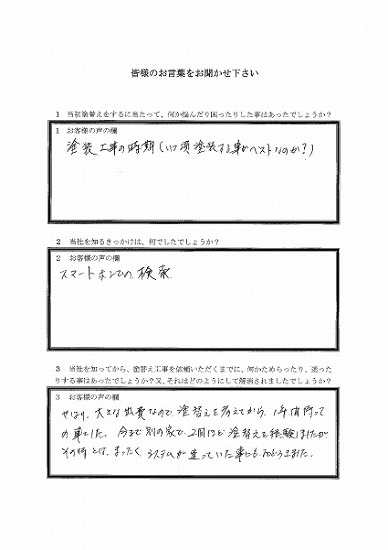 皆様のお言葉をお聞かせ下さい
1 当初塗替えをするに当たって、何か悩んだり困ったりした事はあったでしょうか？
1 お客様の声の欄
塗装工事の時期（いつ頃塗装する事がベストなのか？）
2 当社を知るきっかけは、何でしたでしょうか？
2 お客様の声の欄
スマートホンでの検索
3 当社を知ってから、塗替え工事を依頼いただくまでに、何かためらったり、迷った
りする事はあったでしょうか？又、それはどのようにして解消されましたでしょうか？
3 お客様の声の欄
やはり、大きな出費なので、塗替えを考えてから、1年間待って
の事でした。今まで別の家で、2回ほど塗替えを経験しましたが
その時とは、まったくシステムが違っていた事にも